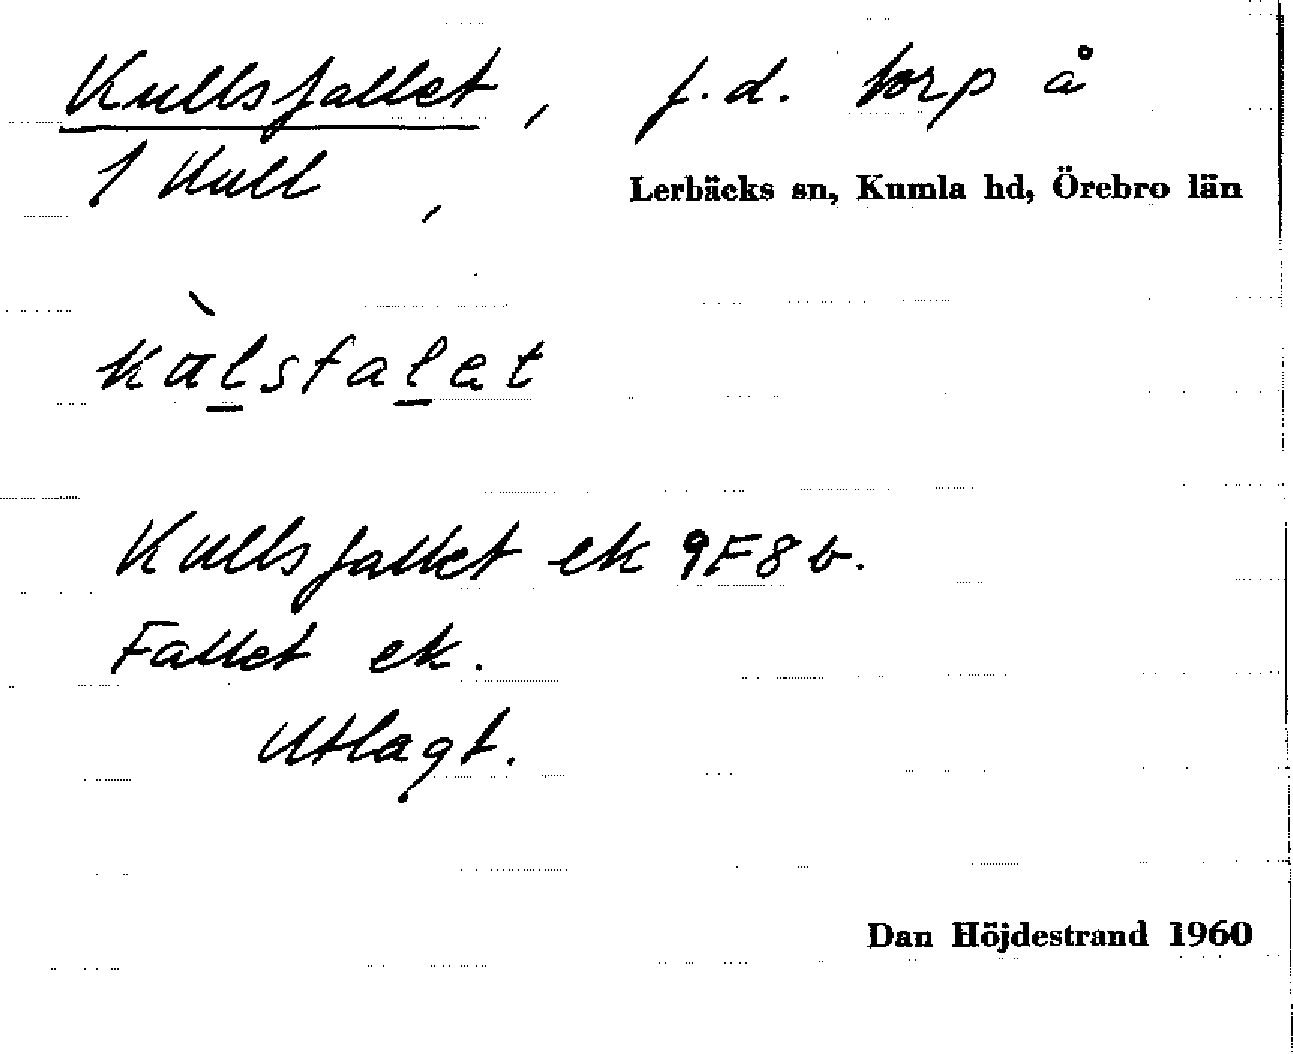 Kullsfallet, f.d. torp å
1 Kull,
Lerbäcks sn, Kumla hd, Örebro län
kàlsfalet
Kullsfallet ek 9F8b.
Fallet ek.
Utlagt.
Dan Höjdestrand 1960